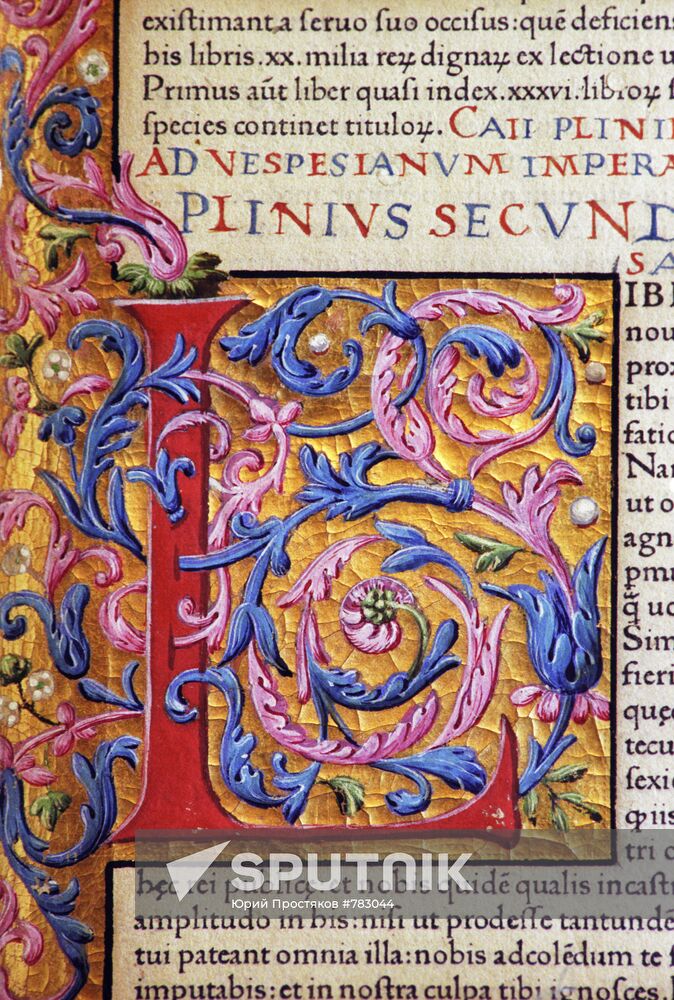 existimant.a seruo suo occisus:quē deficiens
his libris.xx.milia reꝝ dignaꝝ ex lectione u
Primus aūt liber quasi index.xxxvi.libroꝝ s
species continet tituloꝝ. CAII PLINII
AD VESPESIANVM IMPERA
PLINIVS SECVND
SA
L
IBR
nou
prox
tibi
fatio
Nam
ut o
agn
pmu
q̄ uo
Sim
fieri
quę
tecu
sexi
ꝙ iis
tri c
hęc rei publicę et nobis quidē qualis in castr
amplitudo in his:nisi ut prodesse tantundē
tui pateant omnia illa:nobis ad colēdum te f
imputabis:et in nostra culpa tibi ignosces.
SPUTNIK
Юрий Простяков #783044